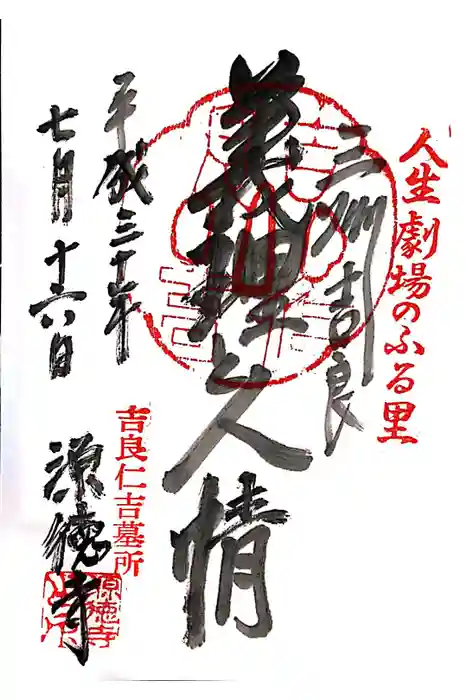 人生劇場のふる里
三州吉良
義理と人情
平成三十年
七月十六日
吉良仁吉墓所
源徳寺
源徳寺